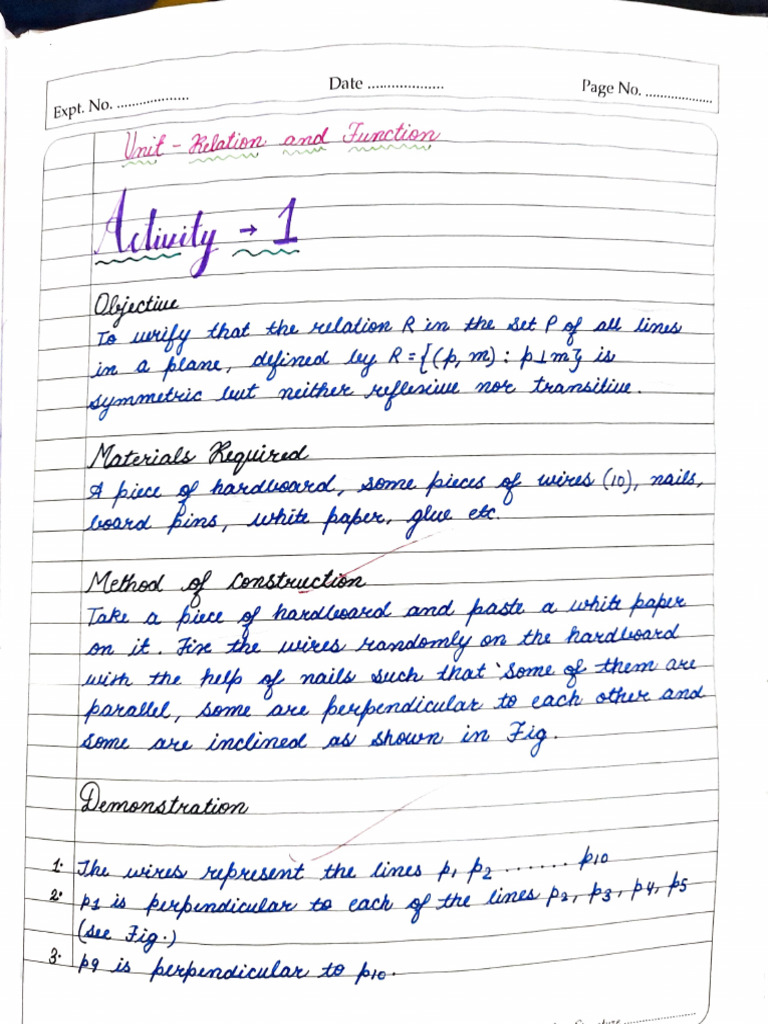 Expt. No. ..................
Date ...................
Page No. ..................
Unit - Relation and Function
Activity → 1
Objective
To verify that the relation R in the set P of all lines
in a plane, defined by R = {(p, m) : p⊥m} is
symmetric but neither reflexive nor transitive.
Materials Required
A piece of hardboard, some pieces of wires (10), nails,
board pins, white paper, glue etc.
Method of Construction
Take a piece of hardboard and paste a white paper
on it. Fix the wires randomly on the hardboard
with the help of nails such that some of them are
parallel, some are perpendicular to each other and
some are inclined as shown in Fig.
Demonstration
1. The wires represent the lines p1 p2 ....... p10
2. p1 is perpendicular to each of the lines p2, p3, p4, p5
(see Fig.)
3. p9 is perpendicular to p10.